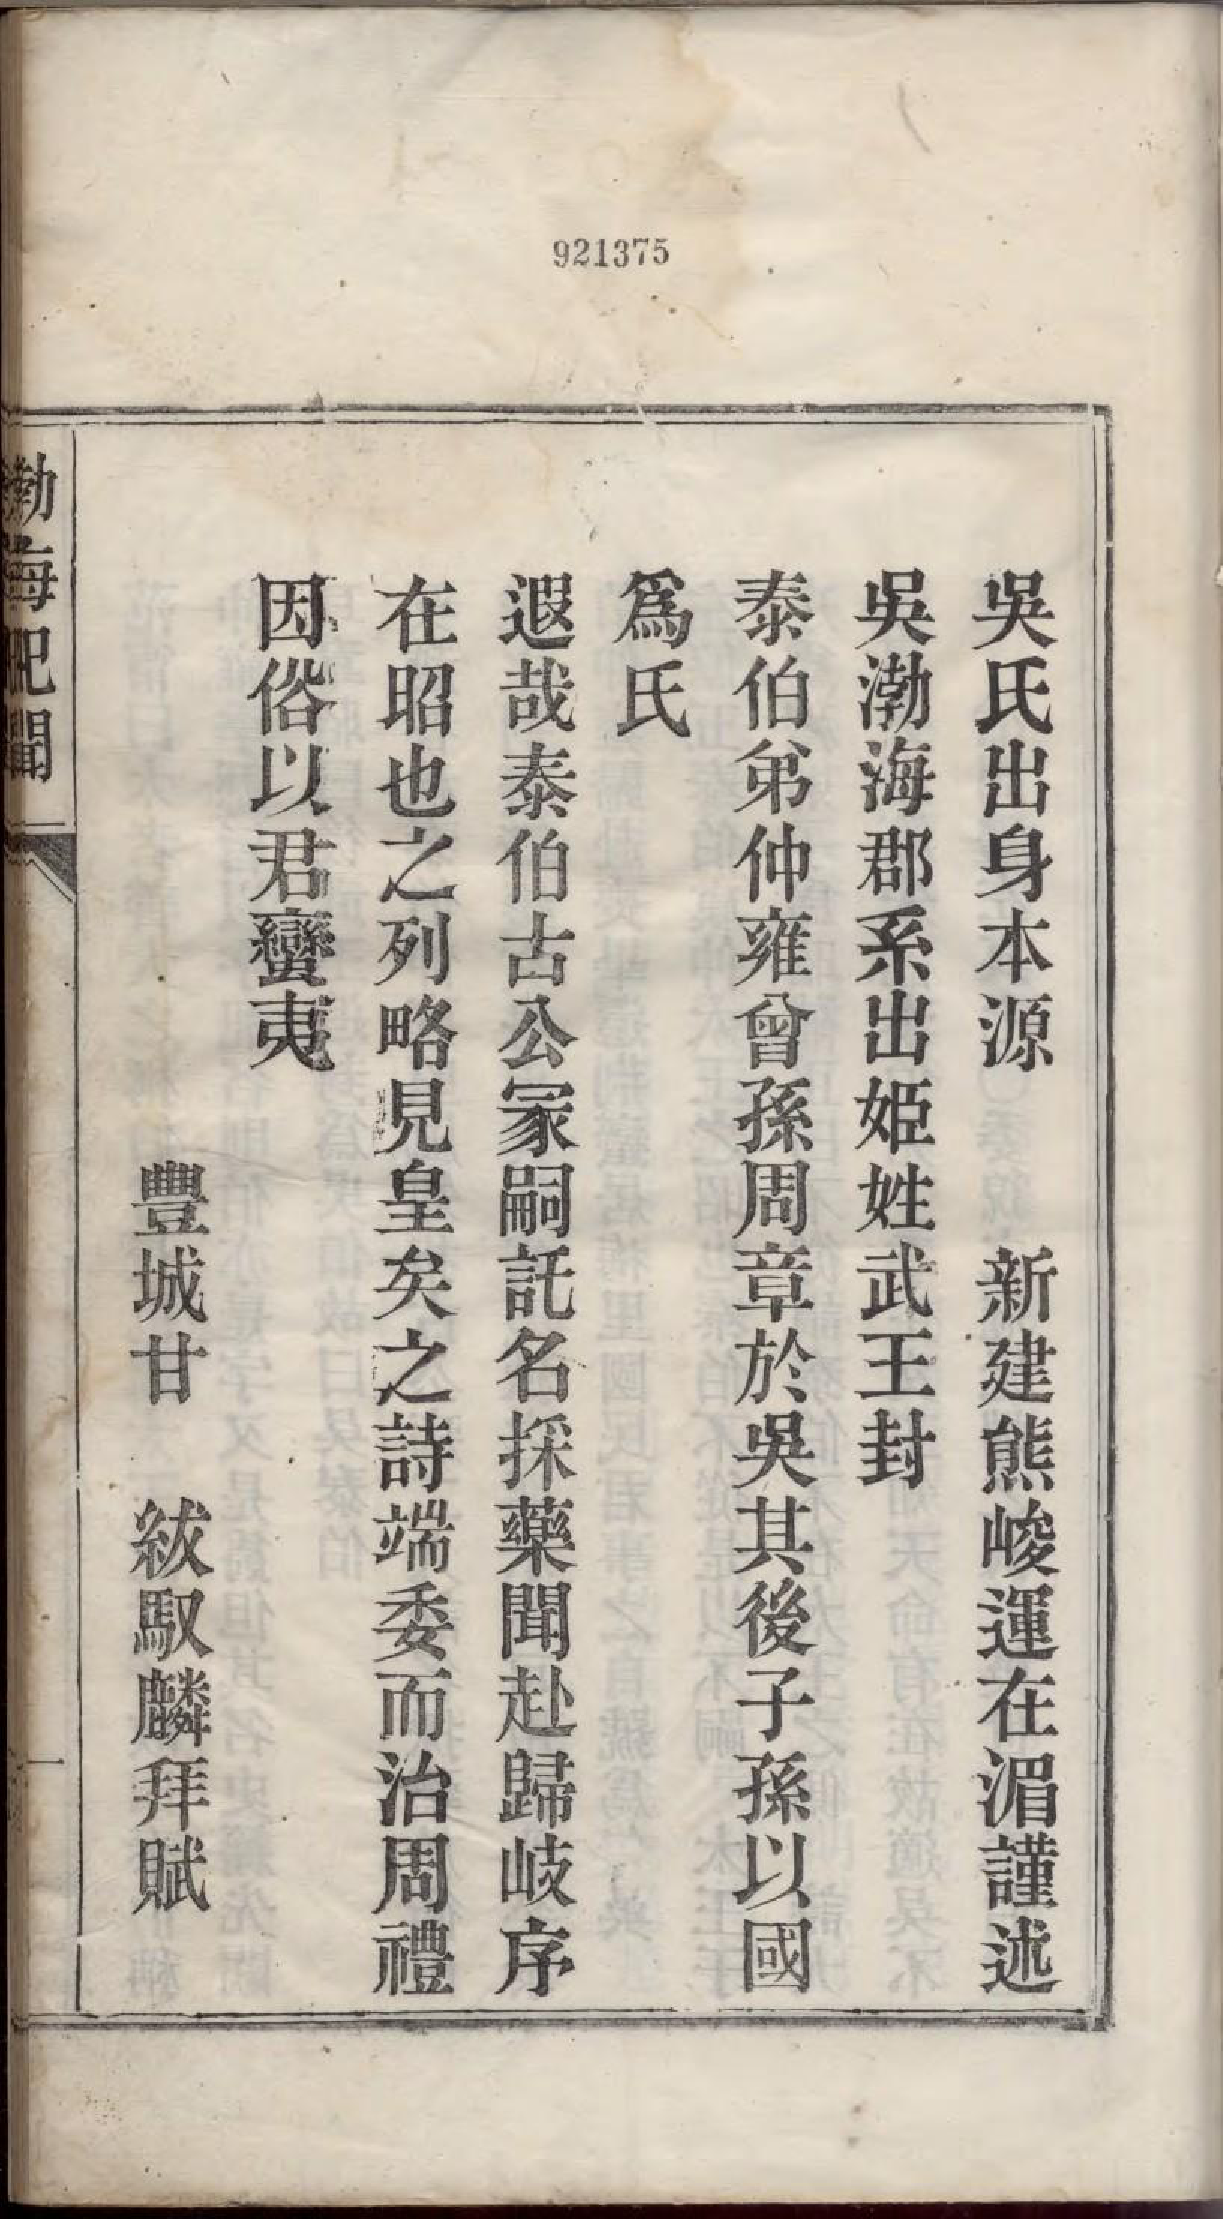 921375
吳氏出身本源　新建熊峻運在湄謹述
吳渤海郡系出姬姓武王封
泰伯弟仲雍曾孫周章於吳其後子孫以國
爲氏
遐哉泰伯古公冢嗣託名採藥聞赴歸岐序
在昭也之列略見皇矣之詩端委而治周禮
因俗以君蠻夷
豐城甘　紱馭麟拜賦
渤海紀聞
一